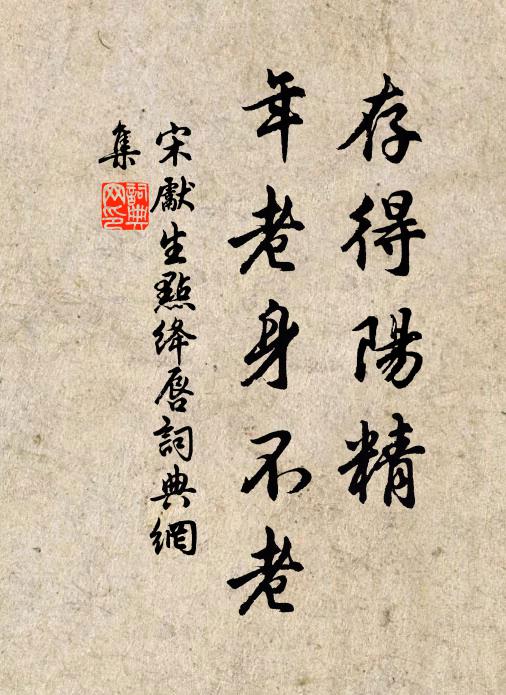 存得陽精
年老身不老
宋獻生點絳唇詞典網
集
詞典网印